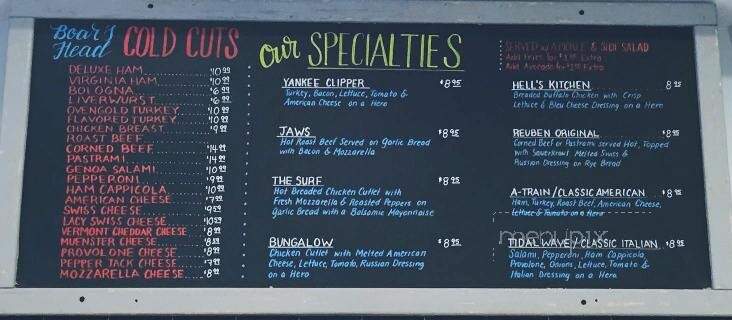 Boar's Head COLD CUTS
DELUXE HAM 10.99
VIRGINIA HAM 10.99
BOLOGNA $6.99
LIVERWURST $6.99
OVENGOLD TURKEY 10.99
FLAVORED TURKEY 10.99
CHICKEN BREAST $9.99
ROAST BEEF
CORNED BEEF $14.99
PASTRAMI $14.99
GENOA SALAMI $10.99
PEPPERONI $9.99
HAM CAPPICOLA $10.99
AMERICAN CHEESE $7.99
SWISS CHEESE $9.59
LACY SWISS CHEESE $10.59
VERMONT CHEDDAR CHEESE $8.99
MUENSTER CHEESE $8.59
PROVOLONE CHEESE $8.99
PEPPER JACK CHEESE
MOZZARELLA CHEESE $8.99
our SPECIALTIES
YANKEE CLIPPER $8.95
Turkey, Bacon, Lettuce, Tomato &
American Cheese on a Hero
JAWS $8.95
Hot Roast Beef Served on Garlic Bread
with Bacon & Mozzarella
THE SURF $8.95
Hot Breaded Chicken Cutlet with
Fresh Mozzarella & Roasted Peppers on
Garlic Bread with a Balsamic Mayonnaise
BUNGALOW $8.95
Chicken Cutlet with Melted American
Cheese, Lettuce, Tomato, Russian Dressing
on a Hero
SERVED w/ A PICKLE & SIDE SALAD
Add Fries for Extra
Add Avocado for Extra
HELL'S KITCHEN 8.95
Breaded Buffalo Chicken with Crisp
Lettuce & Bleu Cheese Dressing on a Hero
REUBEN ORIGINAL $8.95
Corned Beef or Pastrami served Hot, Topped
with Sauerkraut Melted Swiss &
Russian Dressing on Rye Bread
A-TRAIN/CLASSIC AMERICAN $8.95
Ham, Turkey, Roast Beef, American Cheese,
Lettuce & Tomato on a Hero
menupix
TIDAL WAVE/CLASSIC ITALIAN $8.95
Salami, Pepperoni, Ham Cappicola
Provolone, Onions, Lettuce, Tomato &
Italian Dressing on a Hero